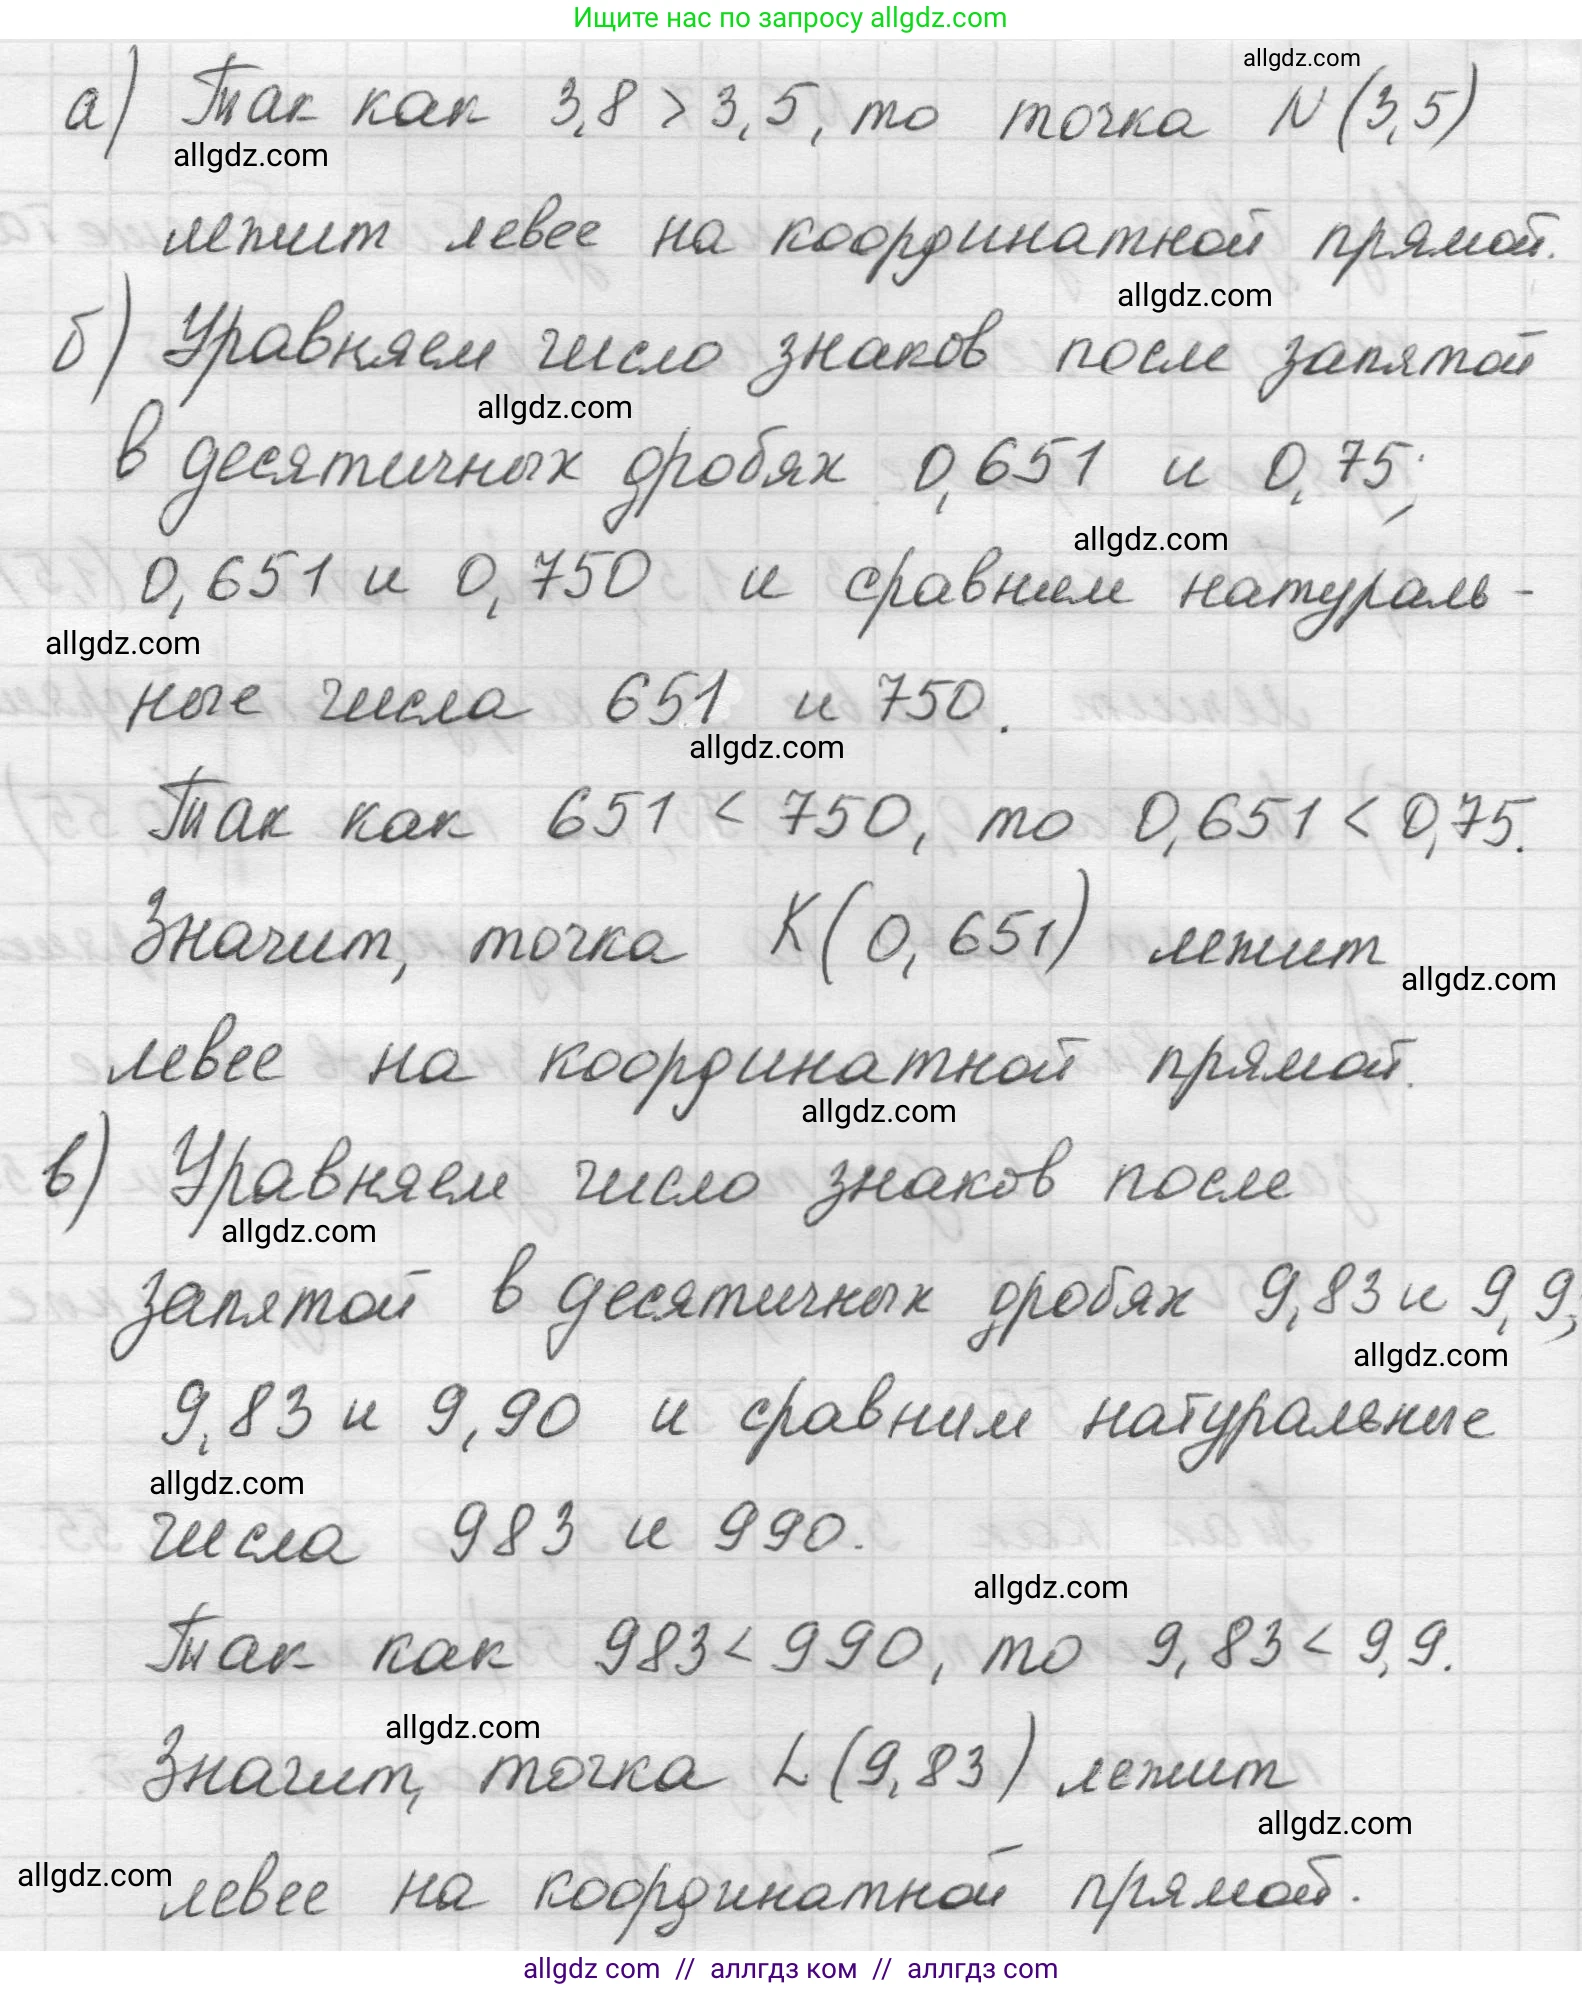 Ищите нас по запросу allgdz.com
allgdz.com
а) Так как 3,8 > 3,5, то точка N(3,5)
allgdz.com
лежит левее на координатной прямой.
allgdz.com
б) Уравняем число знаков после запятой
allgdz.com
в десятичных дробях 0,651 и 0,75;
allgdz.com
0,651 и 0,750 и сравним натураль-
allgdz.com
ные числа 651 и 750.
allgdz.com
Так как 651 < 750, то 0,651 < 0,75.
Значит, точка K(0,651) лежит
allgdz.com
левее на координатной прямой.
allgdz.com
в) Уравняем число знаков после
allgdz.com
запятой в десятичных дробях 9,83 и 9,9;
allgdz.com
9,83 и 9,90 и сравним натуральные
allgdz.com
числа 983 и 990.
allgdz.com
Так как 983 < 990, то 9,83 < 9,9.
allgdz.com
Значит, точка L(9,83) лежит
allgdz.com
allgdz.com
левее на координатной прямой.
allgdz com // аллгдз ком // аллгдз com